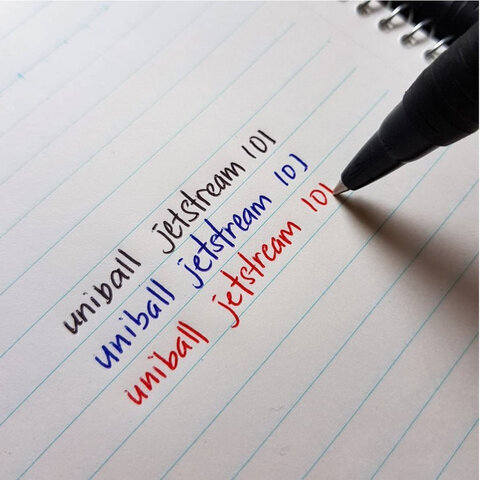 uniball jetstream 101
uniball jetstream 101
uniball jetstream 101